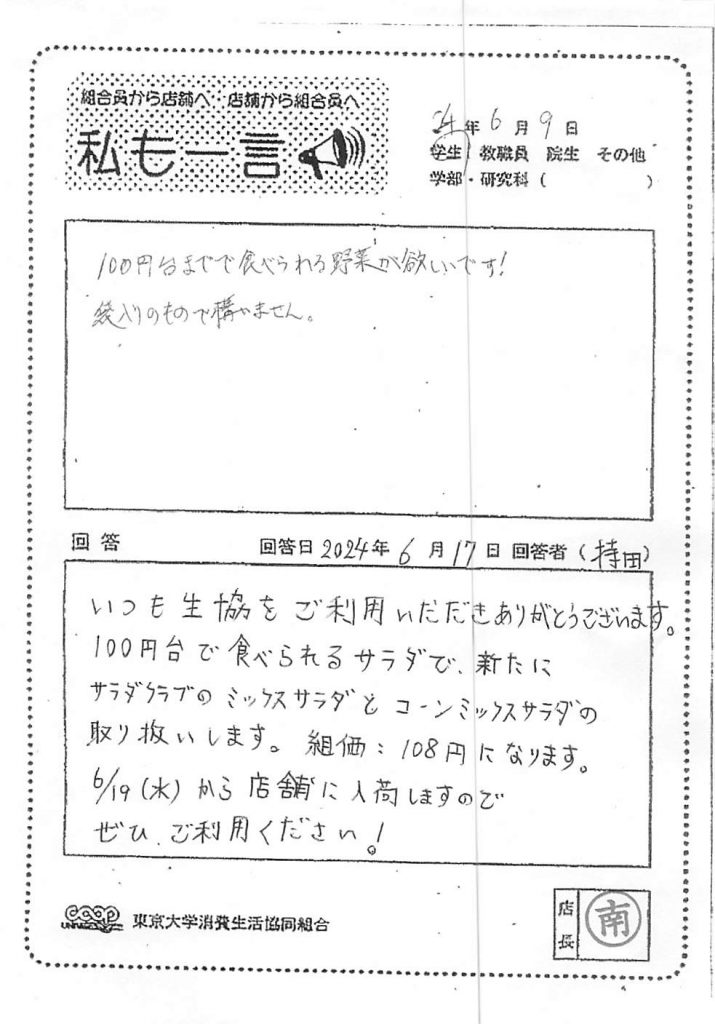 組合員から店舗へ・店舗から組合員へ
私も一言
24年6月9日
学生 教職員 院生 その他
学部・研究科( )
100円台までで食べられる野菜が欲しいです!
袋入りのもので構いません。
回答 回答日2024年6月17日 回答者(持田)
いつも生協をご利用いただきありがとうございます。
100円台で食べられるサラダで、新たに
サラダクラブのミックスサラダとコーンミックスサラダの
取り扱いします。組価:108円になります。
6/19(水)から店舗に入荷しますので
ぜひ、ご利用ください!
coop 東京大学消費生活協同組合
店長 南